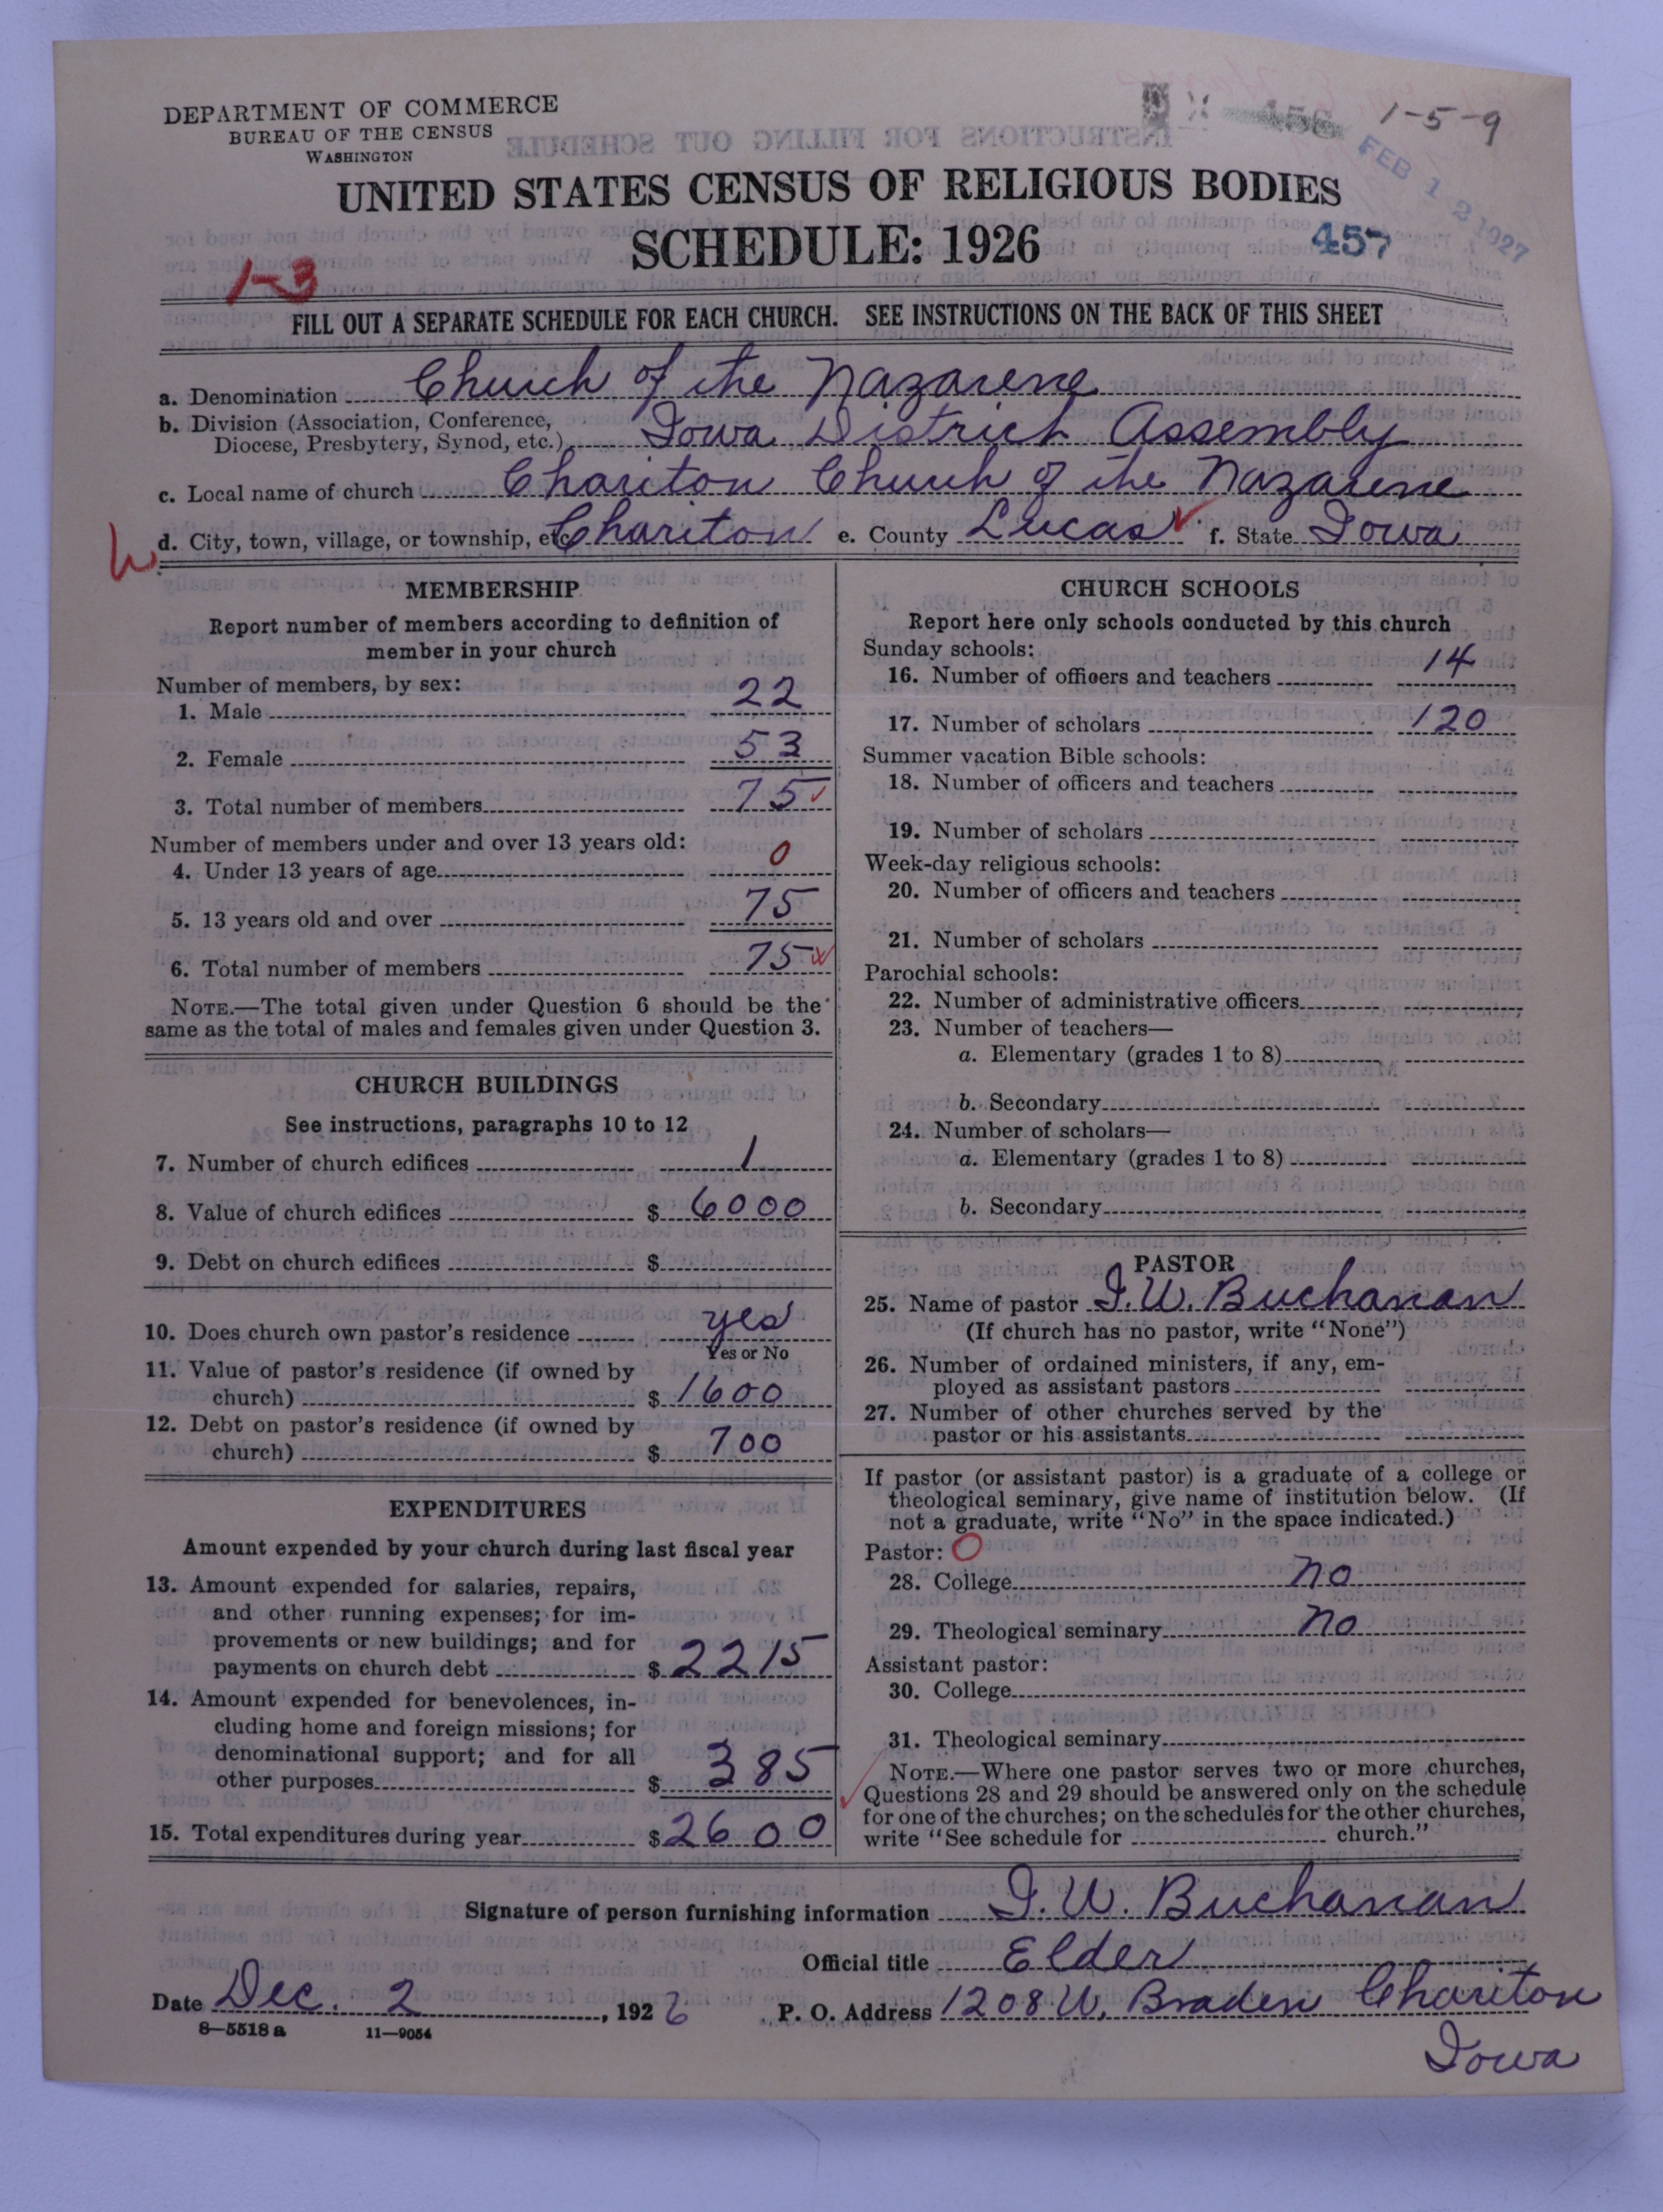 DEPARTMENT OF COMMERCE
BUREAU OF THE CENSUS
WASHINGTON
1-5-9
FEB 12 1927
UNITED STATES CENSUS OF RELIGIOUS BODIES
SCHEDULE: 1926
457
1-3
FILL OUT A SEPARATE SCHEDULE FOR EACH CHURCH. SEE INSTRUCTIONS ON THE BACK OF THIS SHEET
a. Denomination Church of the Nazarene
b. Division (Association, Conference,
Diocese, Presbytery, Synod, etc.) Iowa District Assembly
c. Local name of church Chariton Church of the Nazarene
d. City, town, village, or township, etc. Chariton e. County Lucas f. State Iowa
MEMBERSHIP
Report number of members according to definition of
member in your church
Number of members, by sex:
1. Male 22
2. Female 53
3. Total number of members 75
Number of members under and over 13 years old:
4. Under 13 years of age 0
5. 13 years old and over 75
6. Total number of members 75
NOTE.—The total given under Question 6 should be the
same as the total of males and females given under Question 3.
CHURCH BUILDINGS
See instructions, paragraphs 10 to 12
7. Number of church edifices 1
8. Value of church edifices $ 6000
9. Debt on church edifices $
10. Does church own pastor's residence yes
Yes or No
11. Value of pastor's residence (if owned by
church) $ 1600
12. Debt on pastor's residence (if owned by
church) $ 700
EXPENDITURES
Amount expended by your church during last fiscal year
13. Amount expended for salaries, repairs,
and other running expenses; for im-
provements or new buildings; and for
payments on church debt $ 2215
14. Amount expended for benevolences, in-
cluding home and foreign missions; for
denominational support; and for all
other purposes $ 385
15. Total expenditures during year $ 2600
CHURCH SCHOOLS
Report here only schools conducted by this church
Sunday schools:
16. Number of officers and teachers 14
17. Number of scholars 120
Summer vacation Bible schools:
18. Number of officers and teachers
19. Number of scholars
Week-day religious schools:
20. Number of officers and teachers
21. Number of scholars
Parochial schools:
22. Number of administrative officers
23. Number of teachers—
a. Elementary (grades 1 to 8)
b. Secondary
24. Number of scholars—
a. Elementary (grades 1 to 8)
b. Secondary
PASTOR
25. Name of pastor I. W. Buchanan
(If church has no pastor, write "None")
26. Number of ordained ministers, if any, em-
ployed as assistant pastors
27. Number of other churches served by the
pastor or his assistants
If pastor (or assistant pastor) is a graduate of a college or
theological seminary, give name of institution below. (If
not a graduate, write "No" in the space indicated.)
Pastor: O
28. College no
29. Theological seminary no
Assistant pastor:
30. College
31. Theological seminary
NOTE.—Where one pastor serves two or more churches,
Questions 28 and 29 should be answered only on the schedule
for one of the churches; on the schedules for the other churches,
write "See schedule for church."
Signature of person furnishing information I. W. Buchanan
Official title Elder
Date Dec. 2, 1926 P. O. Address 1208 W. Braden Chariton
Iowa
8—5518 a 11—9054